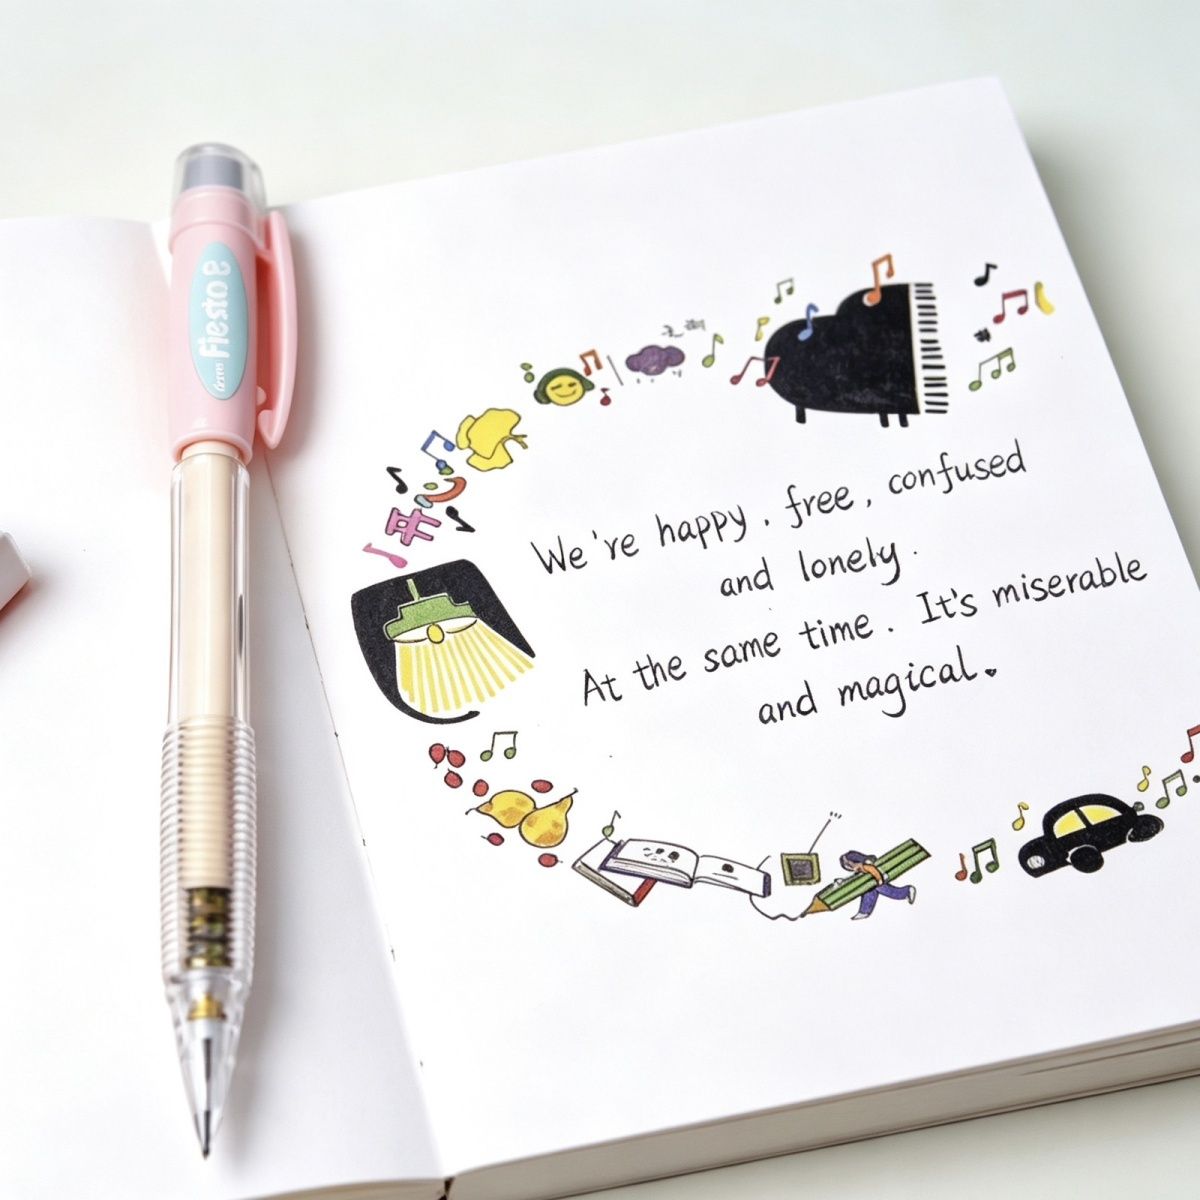 Fiesta
We're happy. free, confused
and lonely.
At the same time. It's miserable
and magical.